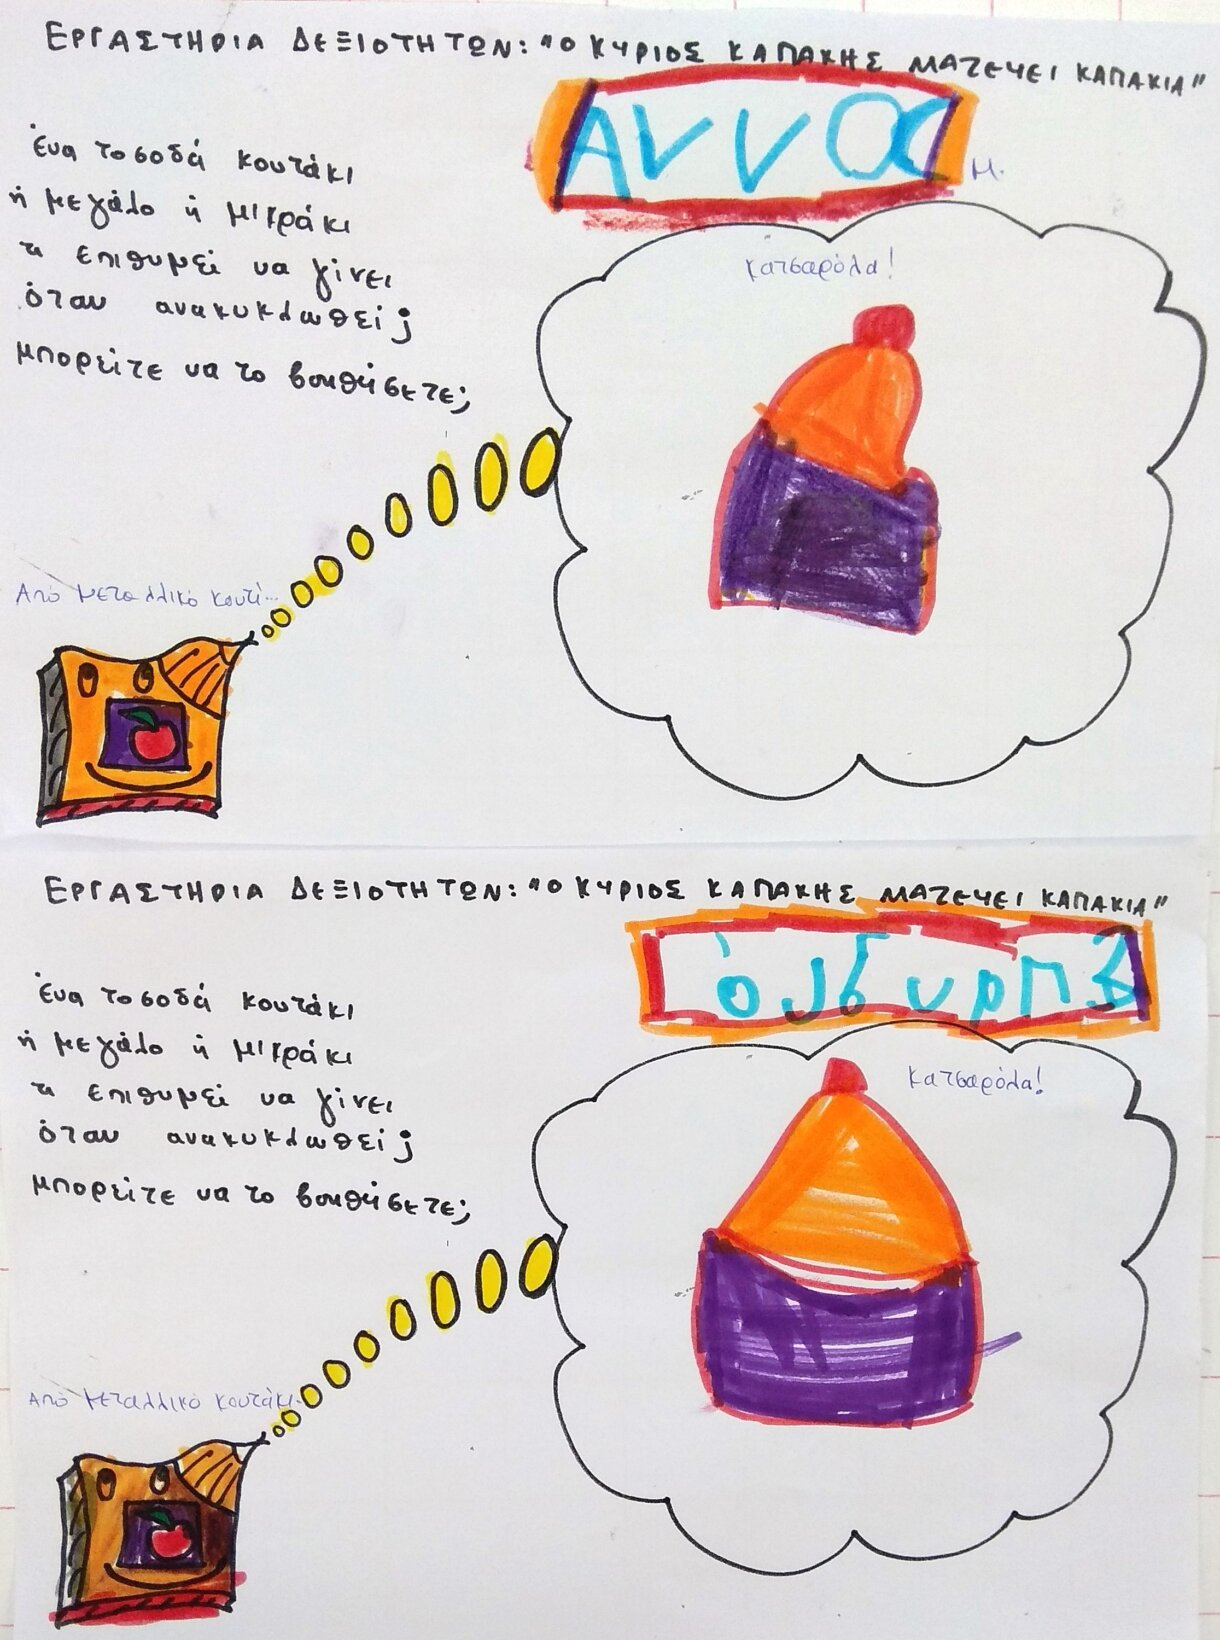 ΕΡΓΑΣΤΗΡΙΑ ΔΕΞΙΟΤΗΤΩΝ: "Ο ΚΥΡΙΟΣ ΚΑΠΑΚΗΣ ΜΑΖΕΥΕΙ ΚΑΠΑΚΙΑ"
Μ.
ένα τοσοδά κουτάκι
ή μεγάλο ή μικράκι
τι επιθυμεί να γίνει
όταν ανακυκλωθεί;
μπορείτε να το βοηθήσετε;
κατσαρόλα!
Από μεταλλικό κουτί...
ΕΡΓΑΣΤΗΡΙΑ ΔΕΞΙΟΤΗΤΩΝ: "Ο ΚΥΡΙΟΣ ΚΑΠΑΚΗΣ ΜΑΖΕΥΕΙ ΚΑΠΑΚΙΑ"
ένα τοσοδά κουτάκι
ή μεγάλο ή μικράκι
τι επιθυμεί να γίνει
όταν ανακυκλωθεί;
μπορείτε να το βοηθήσετε;
κατσαρόλα!
Από μεταλλικό κουτάκι...